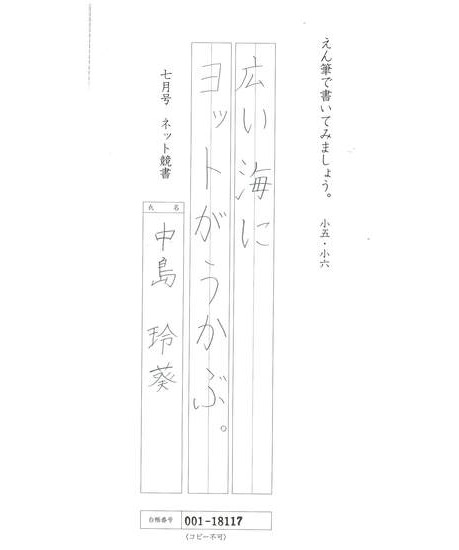 えん筆で書いてみましょう。 小五・小六
広い海に
ヨットがうかぶ。
七月号 ネット競書
氏名
中島 玲葵
台帳番号 001-18117
(コピー不可)